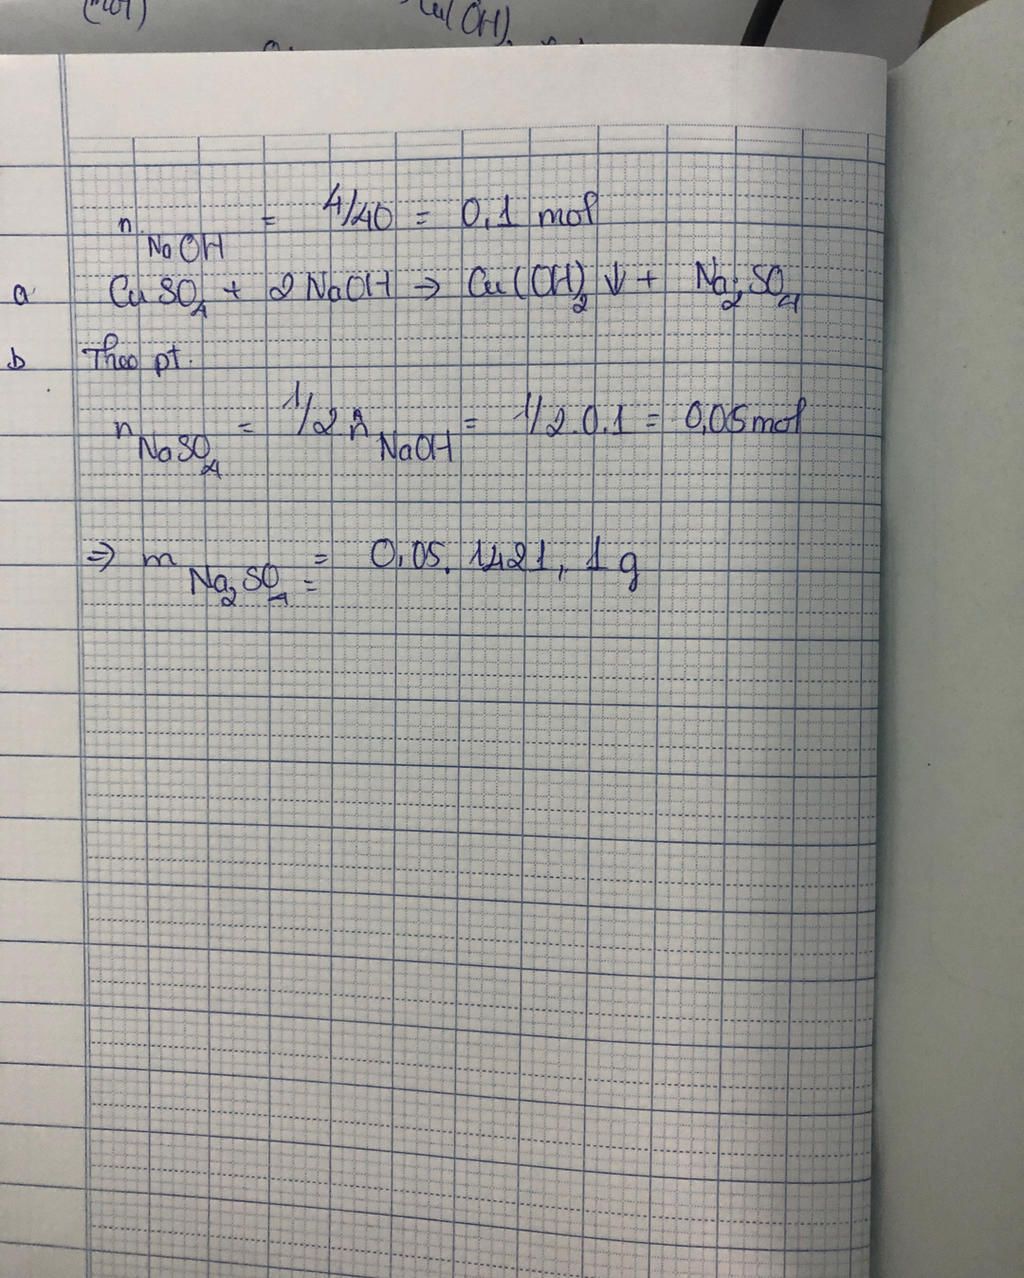 (mol)
Cu(OH)2
n NaOH = 4/40 = 0,1 mol
a CuSO4 + 2NaOH → Cu(OH)2 ↓ + Na2SO4
b Theo pt.
n NaSO4 = 1/2 n NaOH = 1/2.0.1 = 0,05mol
⇒ m Na2SO4 = = 0,05. 1421, 1 g